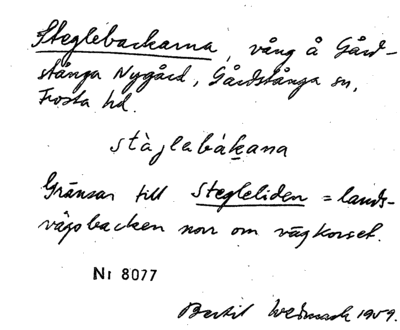 Steglebackarna, vång å Gård-
stånga Nygård, Gårdstånga sn,
Frosta hd.
stàglebákana
Gränsar till Stegleliden = lands-
vägsbacken norr om vägkorset.
Nr 8077
Bertil 1959.